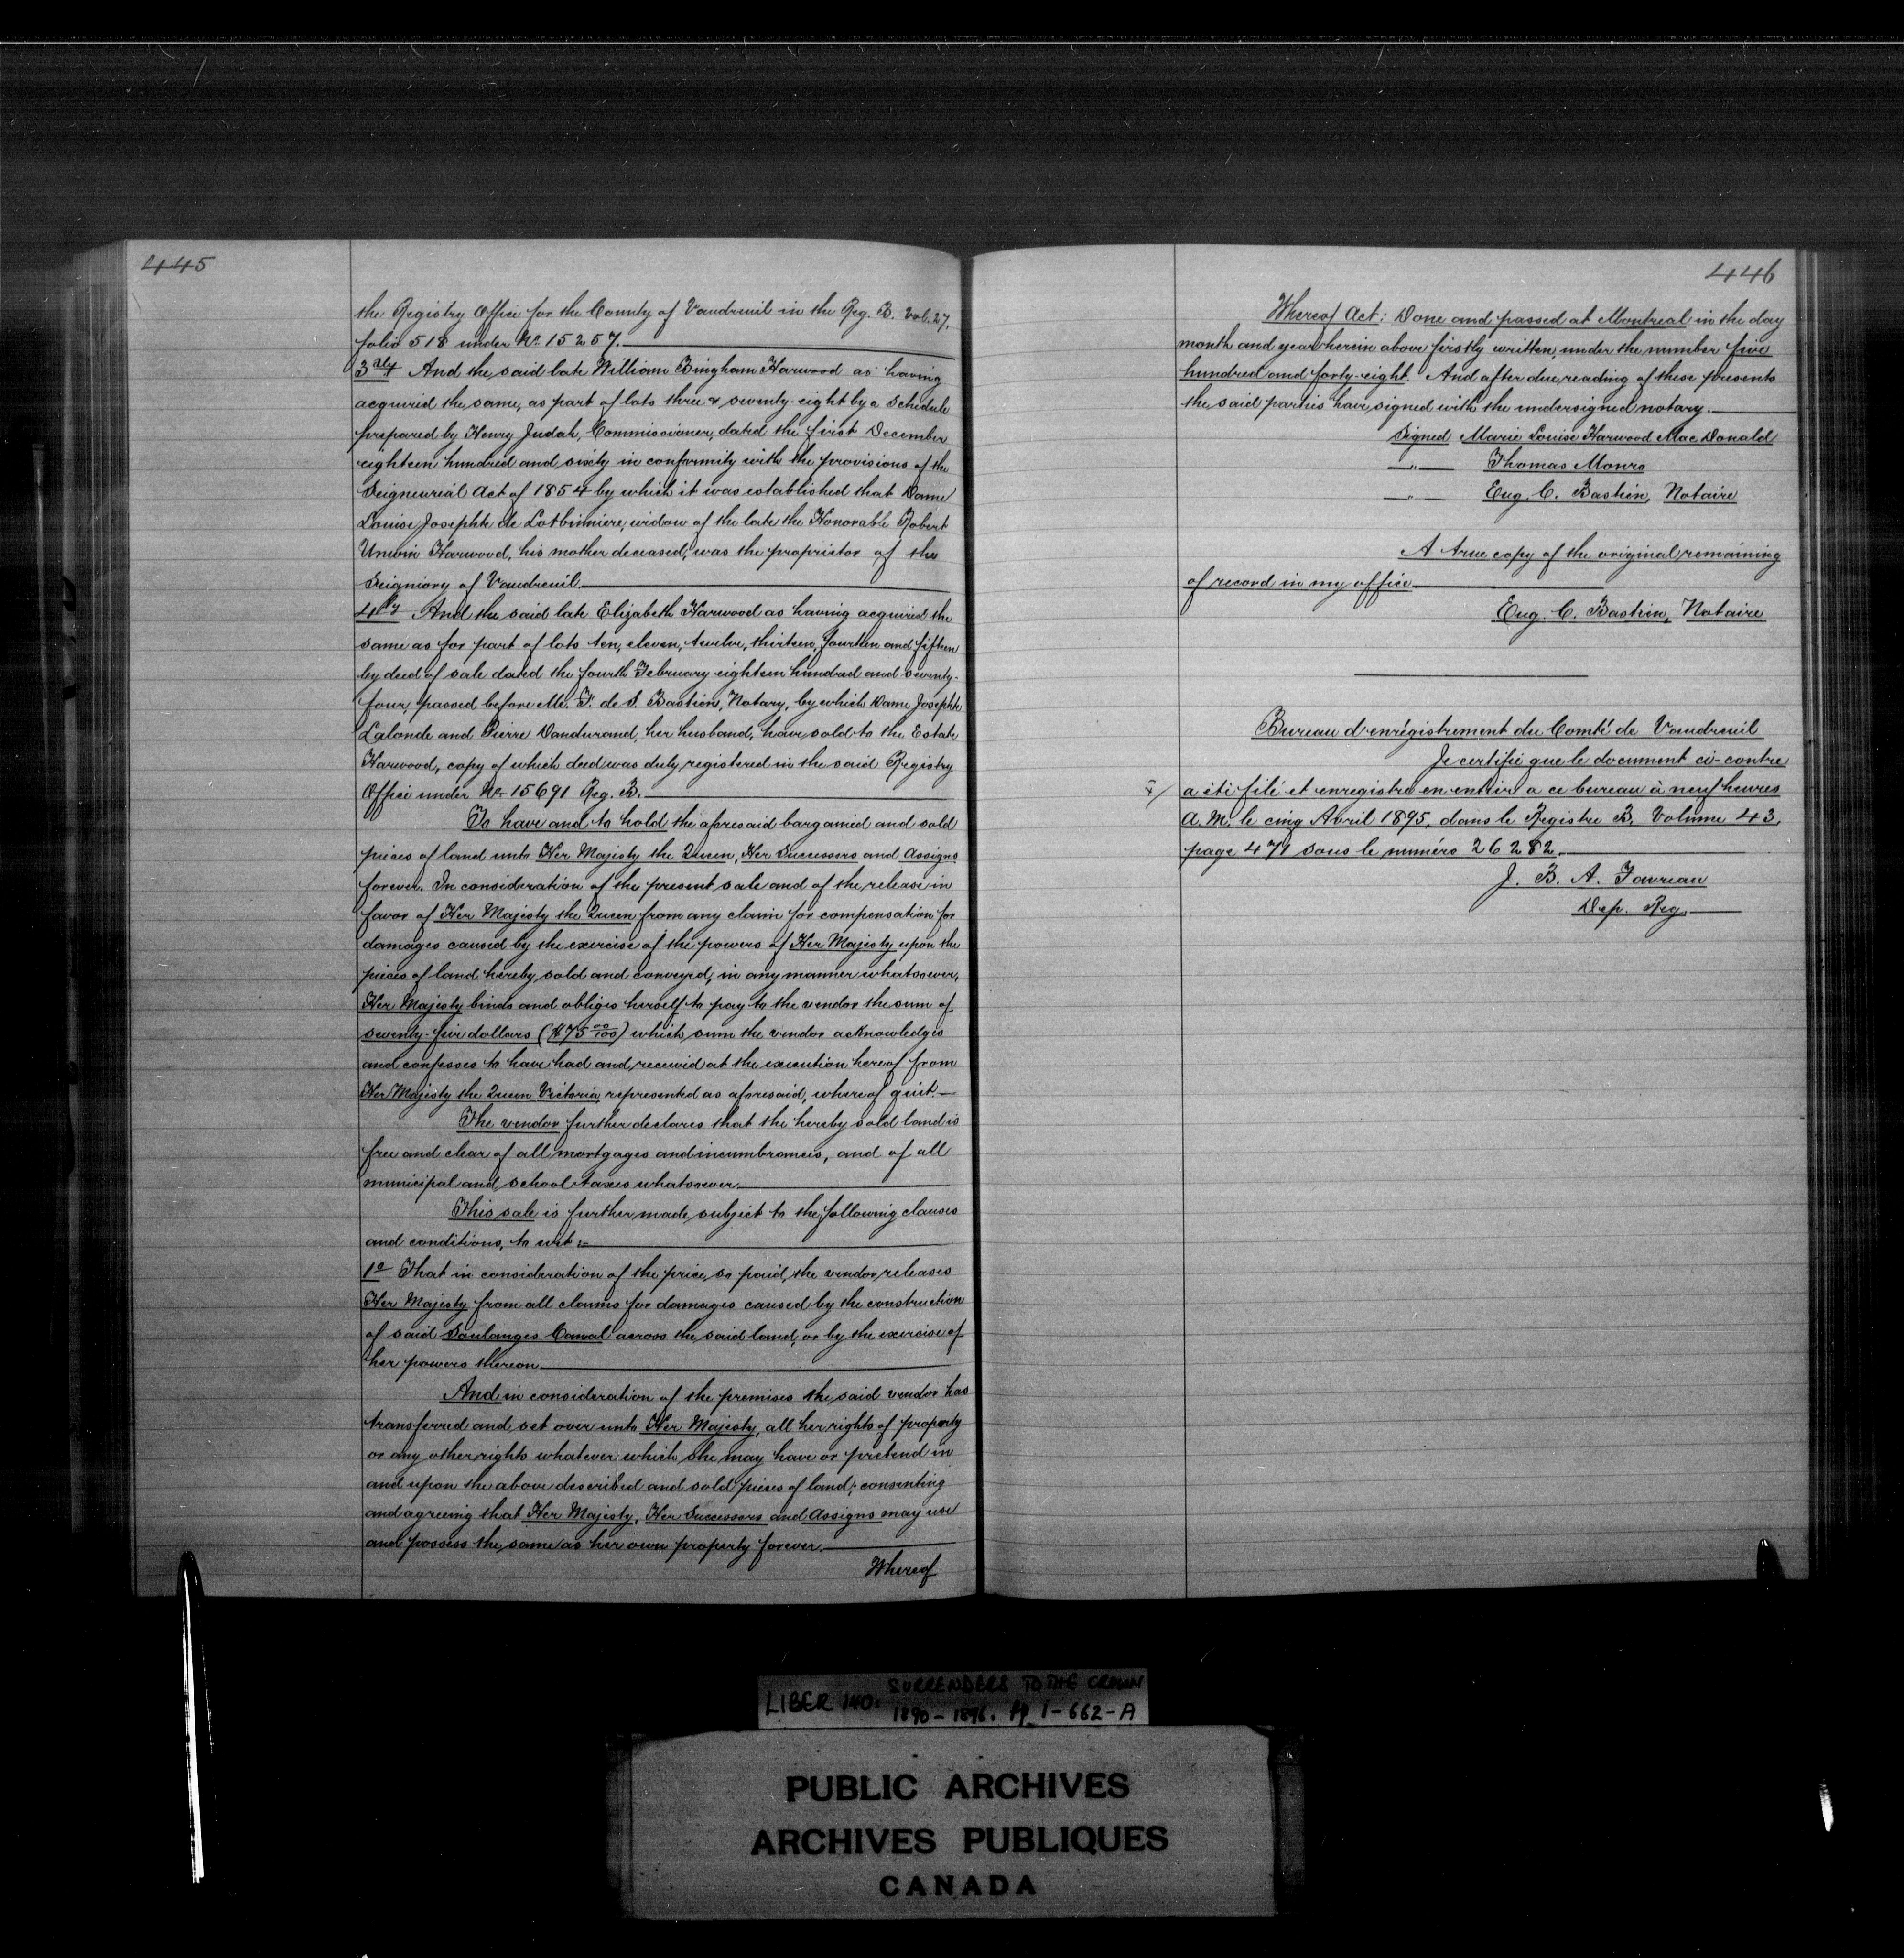 445
the Registry Office for the County of Vaudreuil in the Reg. B. Vol. 27,
folio 518 under No. 15257.
3rdly And the said late William Bingham Harwood as having
acquired the same, as part of lots three & seventy-eight by a Schedule
prepared by Henry Judah, Commissioner, dated the first December
eighteen hundred and sixty in conformity with the provisions of the
Seigneurial Act of 1854 by which it was established that Dame
Louise Josephte de Lotbinniere, widow of the late the Honorable Robert
Unwin Harwood, his mother deceased, was the proprietor of the
Seigniory of Vaudreuil.
4ly And the said late Elizabeth Harwood as having acquired the
same as for part of lots ten, eleven, twelve, thirteen, fourteen and fifteen
by deed of sale dated the fourth February eighteen hundred and seventy-
four, passed before Me. F. de S. Bastien, Notary, by which Dame Josephte
Lalonde and Pierre Dandurand, her husband, have sold to the Estate
Harwood, copy of which deed was duly registered in the said Registry
Office under No. 15691 Reg. B.
To have and to hold the aforesaid bargained and sold
pieces of land unto Her Majesty the Queen, Her Successors and Assigns
forever. In consideration of the present sale and of the release in
favor of Her Majesty the Queen from any claim for compensation for
damages caused by the exercise of the powers of Her Majesty upon the
pieces of land hereby sold and conveyed, in any manner whatsoever,
Her Majesty binds and obliges herself to pay to the vendor the sum of
seventy-five dollars ($75 00/100) which sum the vendor acknowledges
and confesses to have had and received at the execution hereof from
Her Majesty the Queen Victoria, represented as aforesaid, whereof quit.
The vendor further declares that the hereby sold land is
free and clear of all mortgages and incumbrances, and of all
municipal and school taxes whatsoever.
This sale is further made subject to the following clauses
and conditions, to wit:-
1o That in consideration of the price, so paid, the vendor releases
Her Majesty from all claims for damages caused by the construction
of said Soulanges Canal across the said land, or by the exercise of
her powers thereon.
And in consideration of the premises the said vendor has
transferred and set over unto Her Majesty, all her rights of property
or any other rights whatever which she may have or pretend in
and upon the above described and sold pieces of land, consenting
and agreeing that Her Majesty, Her Successors and Assigns may use
and possess the same as her own property forever.
Whereof
446
Whereof Act: Done and passed at Montreal in the day
month and year herein above firstly written, under the number five
hundred and forty-eight. And after due reading of these presents
the said parties have signed with the undersigned notary.
Signed Marie Louise Harwood Mac Donald
" Thomas Monro
" Eug. C. Bastien, Notaire
A true copy of the original remaining
of record in my office
Eug. C. Bastien, Notaire
Bureau d'enrégistrement du Comté de Vaudreuil
Je certifie que le document ci-contre
a été filé et enregistré en entier a ce bureau à neuf heures
A.M. le cinq Avril 1895, dans le Registre B. Volume 43,
page 471 sous le numéro 26282.
J. B. A. Favreau
Dep. Reg.
LIBER 140. SURRENDERS TO THE CROWN
1890-1896. Pp i-662-A
PUBLIC ARCHIVES
ARCHIVES PUBLIQUES
CANADA